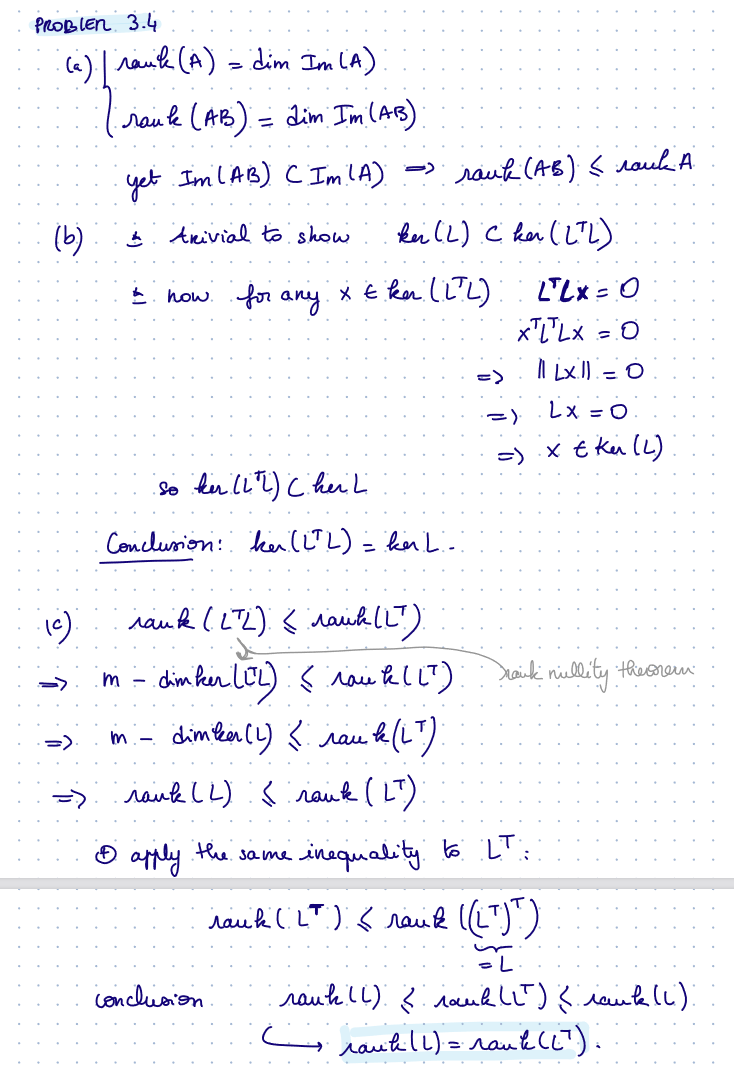 PROBLEM 3.4
(a) rank(A) = dim Im(A)
rank(AB) = dim Im(AB)
yet Im(AB) ⊂ Im(A) ⇒ rank(AB) ≤ rank A
(b) ± trivial to show ker(L) ⊂ ker(LᵀL)
± now for any x ∈ ker(LᵀL) LᵀLx = 0
xᵀLᵀLx = 0
⇒ ||Lx|| = 0
⇒ Lx = 0
⇒ x ∈ ker(L)
so ker(LᵀL) ⊂ ker L
Conclusion: ker(LᵀL) = ker L.
(c) rank(LᵀL) ≤ rank(Lᵀ)
⇒ m - dim ker(LᵀL) ≤ rank(Lᵀ) rank nullity theorem
⇒ m - dim ker(L) ≤ rank(Lᵀ)
⇒ rank(L) ≤ rank(Lᵀ)
⊕ apply the same inequality to Lᵀ:
rank(Lᵀ) ≤ rank((Lᵀ)ᵀ)
= L
conclusion rank(L) ≤ rank(Lᵀ) ≤ rank(L)
↳ rank(L) = rank(Lᵀ).